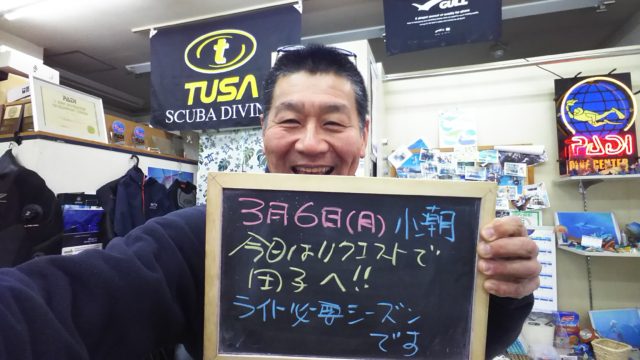 GULL
TUSA
SCUBA DIVING
PADI
PADI
DIVE CENTER
3月6日(月) 小潮
今日はリクエストで
田子へ!!
ライト必要シーズン
です